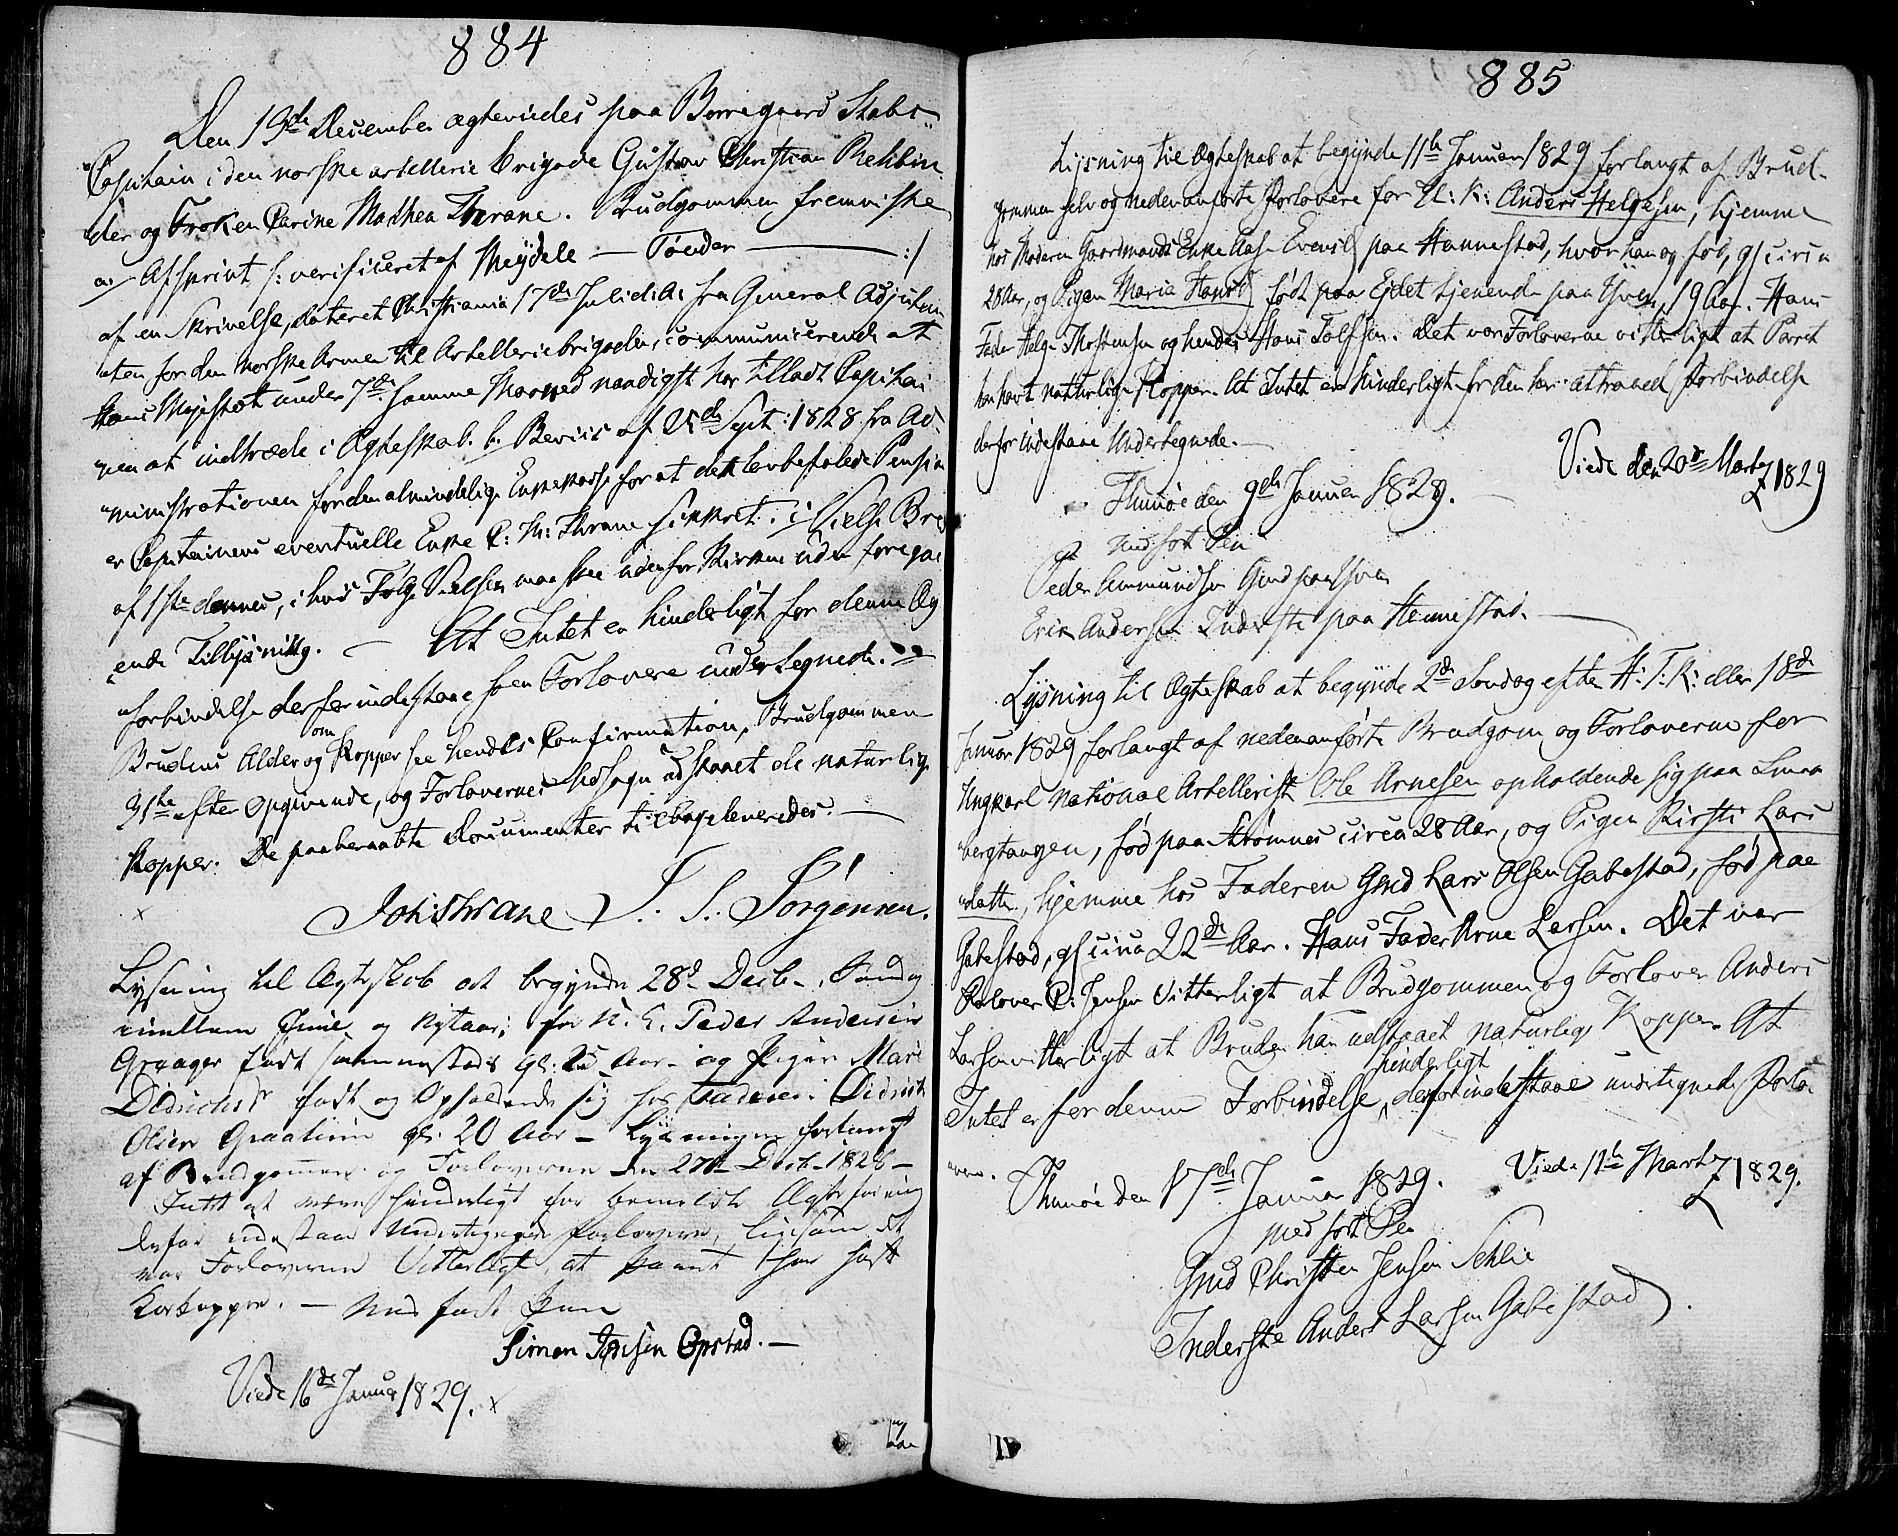 884
Den 19de December ægteviedes paa Borregaard Stabs=
Capitain i den norske artellerie brigade Gustav Christian Rehbin
der og Frøken Carine Mathea Thrane. Brudgommen fremviiste
a:/ Afskrivt /: verificeret af Meydele — Tønder — :/
af en Skrivelse, dateret Christiania 17de Juli d: A: fra General Adjutan
ten for den norske Arme til Artelleriebrigaden, communicerende at
Hans Majestæt under 7de samme Maaned naadigst har tilladt Capitai
nen at indtræde i Ægteskab. b. Beviis af 25de Sept: 1828 fra Ad-
ministrationen for den almindelige Enkekasse for at det lovbefalede Pension
er Capitainens eventuelle Enke C: M: Thrane sikkret. c/ Vielse Brev
af 1ste dennes, i hvis Følge Vielsen maa skee udenfor Kirken uden foregaa
ende Tillysning. — At Intet er hinderligt for denne Æg
forbindelse derfor indestaae som Forlovere undertegnede. —
Brudens Alder og om Kopper see hendes Confirmation, Brudgommen
31te efter Opgivende, og Forlovernes Udsagn udstaaet de naturlige
Kopper. De paaberaabte Documenter tilbageleveredes. —
Joh: Thrane J. S. Sørgensen.
Lysning til Ægteskab at begynde 28d Decb. Søndag
imellem Juul og Nytaar; for U. K. Peder Andersen
Graager født sammesteds gl: 25 Aar — og Pigen Mari
Didrichsdr født og Opholdende sig hos Faderen Didrich
Olsen Graatiim gl. 20 Aar — Lysningen forlangt
af Brudgommen og Forloverne den 27de Decb. 1828 —
Intet at være hinderligt for bemeldte Ægteforening
derfor indestaar Undertegnede Forlovere, ligesom det
var Forloverne Vitterligt, at Parret har havt
Kokopper. — Med ført Pen
Simen Jensen Opstad. —
Viede 16de Januar 1829.
885
Lysning til Ægteskab at begynde 11te Januar 1829 forlangt af Brud-
gommen selv og nedenanførte Forlovere for U: K: Anders Helgesen, hjemme
hos Moderen Gaardmands Enke Aase Evensd paa Hannestad, hvor han og fød, gl circa
28 Aar, og Pigen Maria Hansd født paa Ejdet tjenende paa Yven, 19 Aar. Hans
Fader Helge Thostensen og hendes Hans Tolfsen. Det var Forloverne vitterligt at Parret
har havt naturlige Kopper. At Intet er hinderligt for den her attraaede Forbindelse
derfor indestaae Undertegnede. —
Viede den 20de Marty 1829
Thunøe den 9de Januar 1829. —
Med ført Pen
Peder Ammundsen
Erik Andersen Inderste paa Hennestad. —
Lysning til Ægteskab at begynde 2den Søndag efter H: T: K: eller 18de
Januar 1829 forlangt af nedenanførte Brudgom og Forloverne for
Ungkarl National Artellerist Ole Arnesen opholdende sig paa Smaa
bergtangen, fød paa Strømnes circa 28 Aar, og Pigen Kirsti Lars
datter, hjemme hos Faderen Gmd Lars Olsen Gabestad, fød paa
Gabestad, gl circa 22de Aar. Hans Fader Arne Larsen. Det var
Forlover C: Jensen Vitterligt at Brudgommen og Forlover Anders
Larsen vitterligt at Bruden har udstaaet naturlige Kopper. At
Intet er for denne Forbindelse hinderligt, derfor indestaae undertegnede Forlo
vere.
Thunøe den 17de Januar 1829.
Viede 11te Marty 1829.
med ført Pen
Gmd Christen Jensen Sehlie
Inderste Anders Larsen Gabestad.